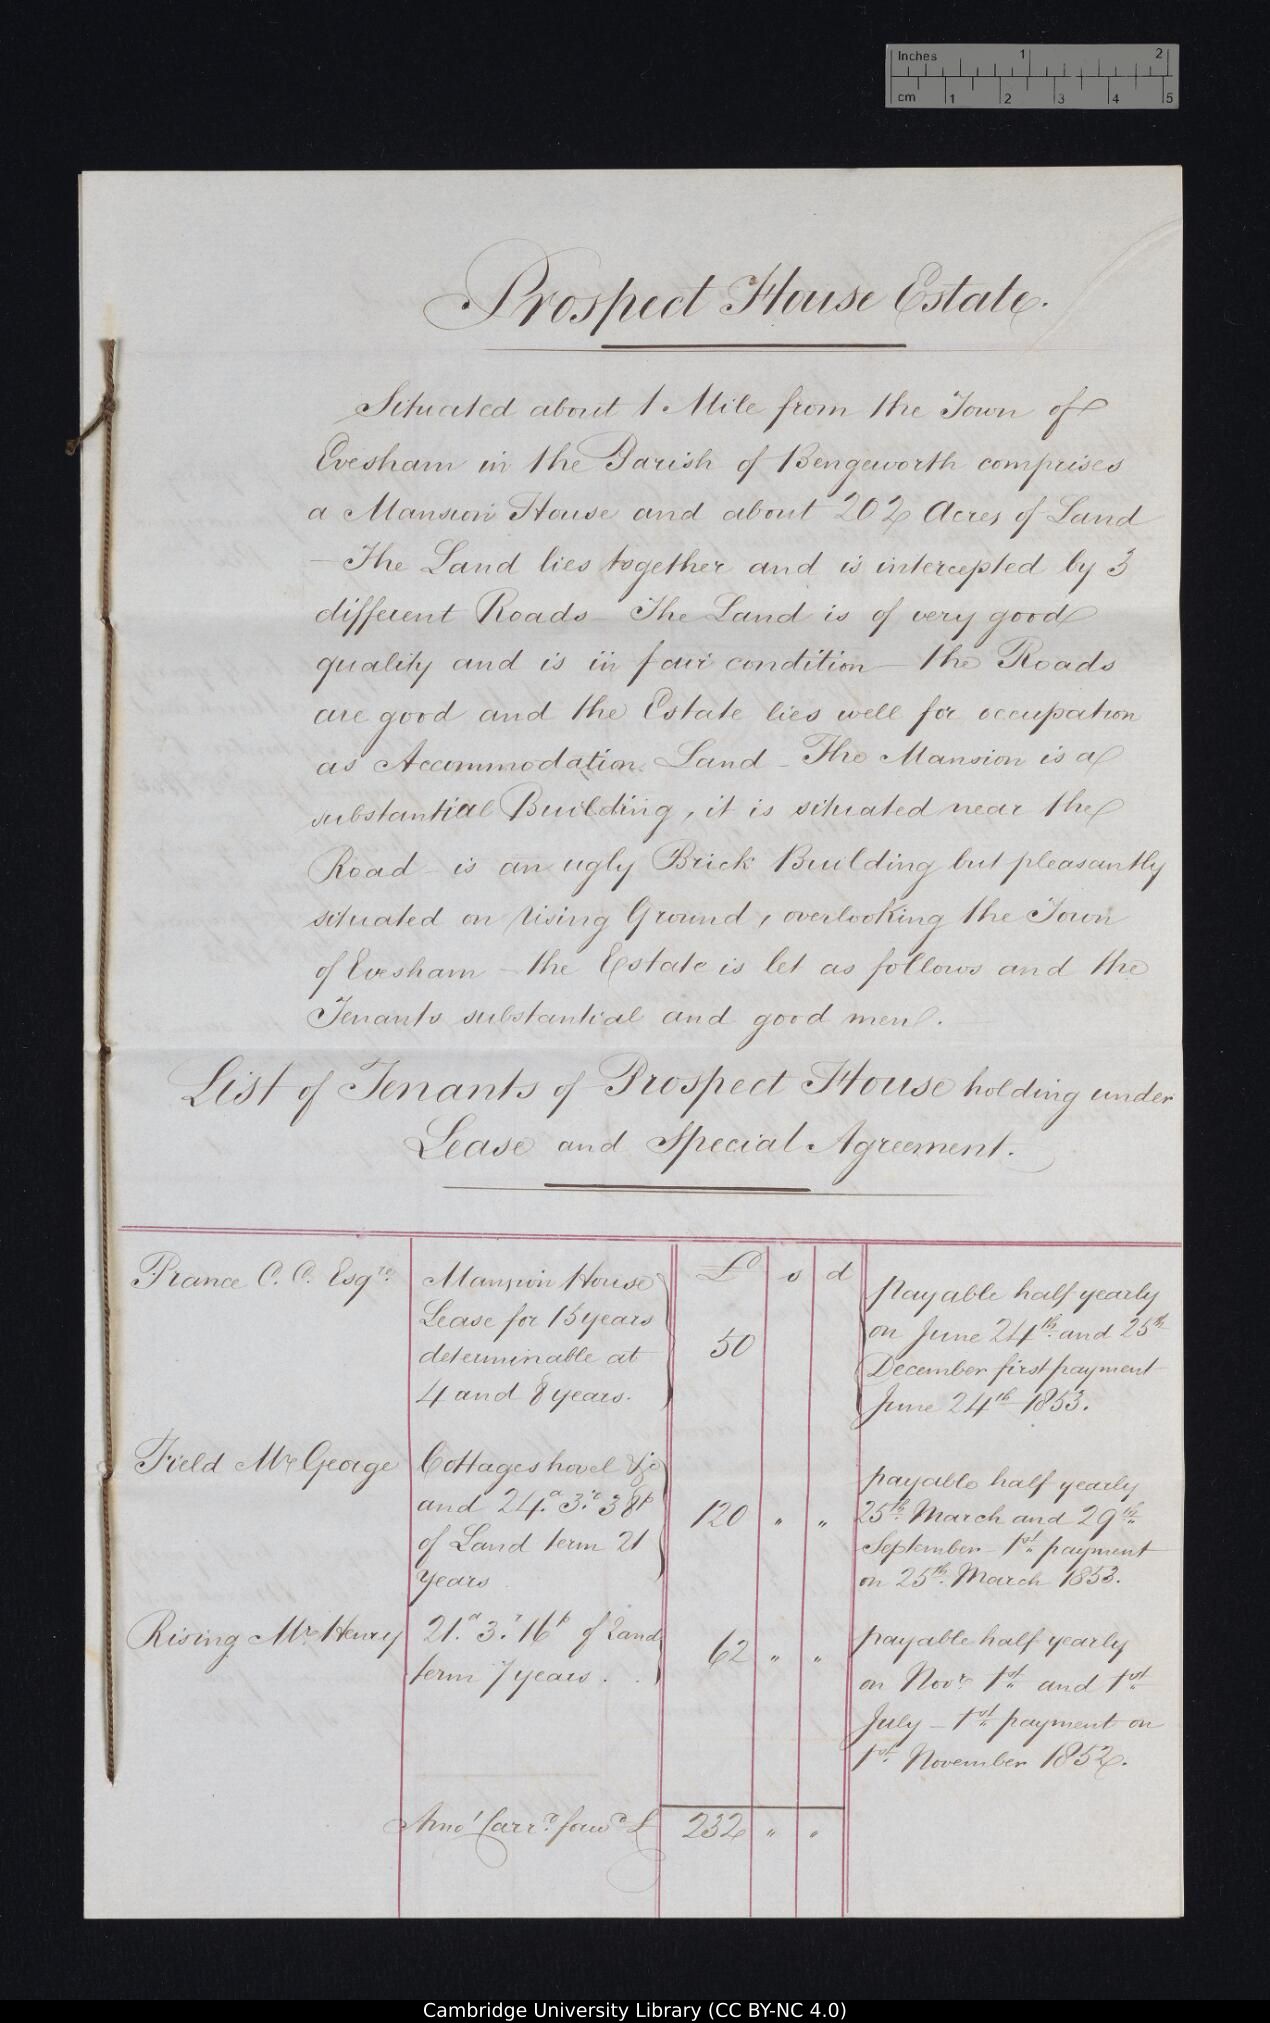 Inches 1 2
cm 1 2 3 4 5
Prospect House Estate.
Situated about 1 Mile from the Town of
Evesham in the Parish of Bengeworth comprises
a Mansion House and about 202 Acres of Land
– The Land lies together and is intercepted by 3
different Roads – The Land is of very good
quality and is in fair condition – the Roads
are good and the Estate lies well for occupation
as Accommodation Land – The Mansion is a
substantial Building, it is situated near the
Road – is an ugly Brick Building but pleasantly
situated on rising Ground, overlooking the Town
of Evesham – the Estate is let as follows and the
Tenants substantial and good men.
List of Tenants of Prospect House holding under
Lease and Special Agreement.
£ s d
Prance C. C. Esqre.
Mansion House
Lease for 15 years
determinable at
4 and 8 years.
50
Payable half yearly
on June 24th. and 25th
December first payment
June 24th 1853.
Field Mr George
Cottages hovel &c
and 24.a 3.r 38p
of Land term 21
years
120 " "
payable half yearly
25th. March and 29th.
September – 1st. payment
on 25th. March 1853.
Rising Mr. Henry
21.a 3.r 16p of Land
term 7 years.
62 " "
payable half yearly
on Novr. 1st. and 1st.
July – 1st. payment on
1st. November 1852.
Amot Carrd. forwd £ 232 " "
Cambridge University Library (CC BY-NC 4.0)